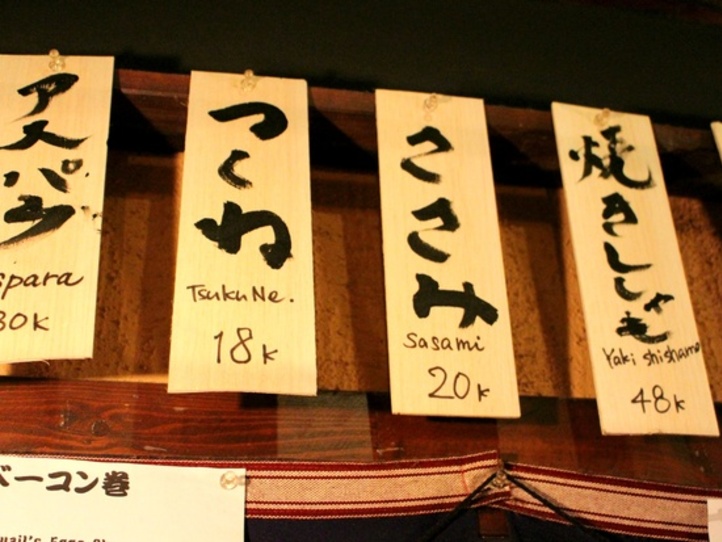 アスパラ
spara
30K
つくね
TsukuNe.
18K
ささみ
sasami
20K
焼きししゃも
Yaki shishamo
48K
ベーコン巻
uail's Eggs